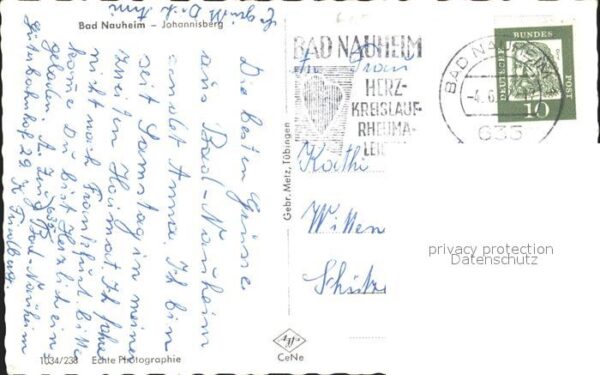 Bad Nauheim - Johannisberg
Die besten Grüsse
aus Bad-Nauheim
sendet Anna. Ich bin
seit Samstag in meiner
zweiten Heimat. Ich fahre
nicht nach Frankfurt. Bitte
komme Du bist Herzlich ein
geladen.
635 Bad-Nauheim
Güterbahnhof 29
Es grüßt Dich
1034/238 Echte Photographie
Gebr. Metz, Tübingen
CeNe
BAD NAUHEIM
HERZ-
KREISLAUF-
RHEUMA-
LEI
BAD NAUHEIM
635
DEUTSCHE
BUNDES
POST
10
Frau
Käthi
Witten
Schütze
privacy protection
Datenschutz